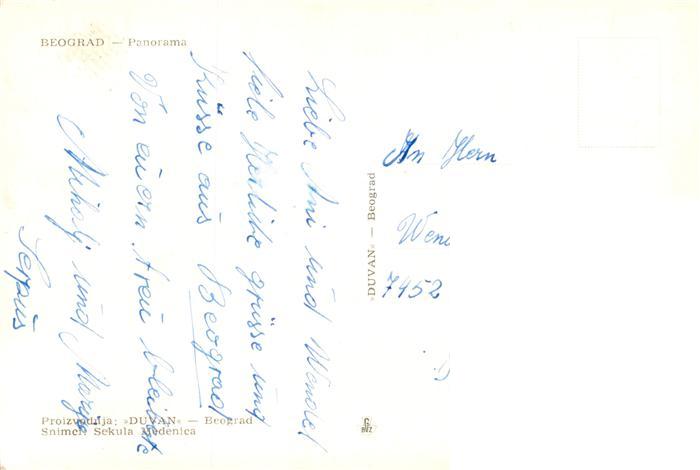 BEOGRAD — Panorama
Liebe Ani und Wendel
Viele Herliche grüsse und
Küsse aus Beograd
Von euern treu bleibste
Mihalj und Marija
Serpüs
»DUVAN« — Beograd
An Hern
Wen
7452
Proizvodnja: »DUVAN« — Beograd
Snimci: Sekula Medenica